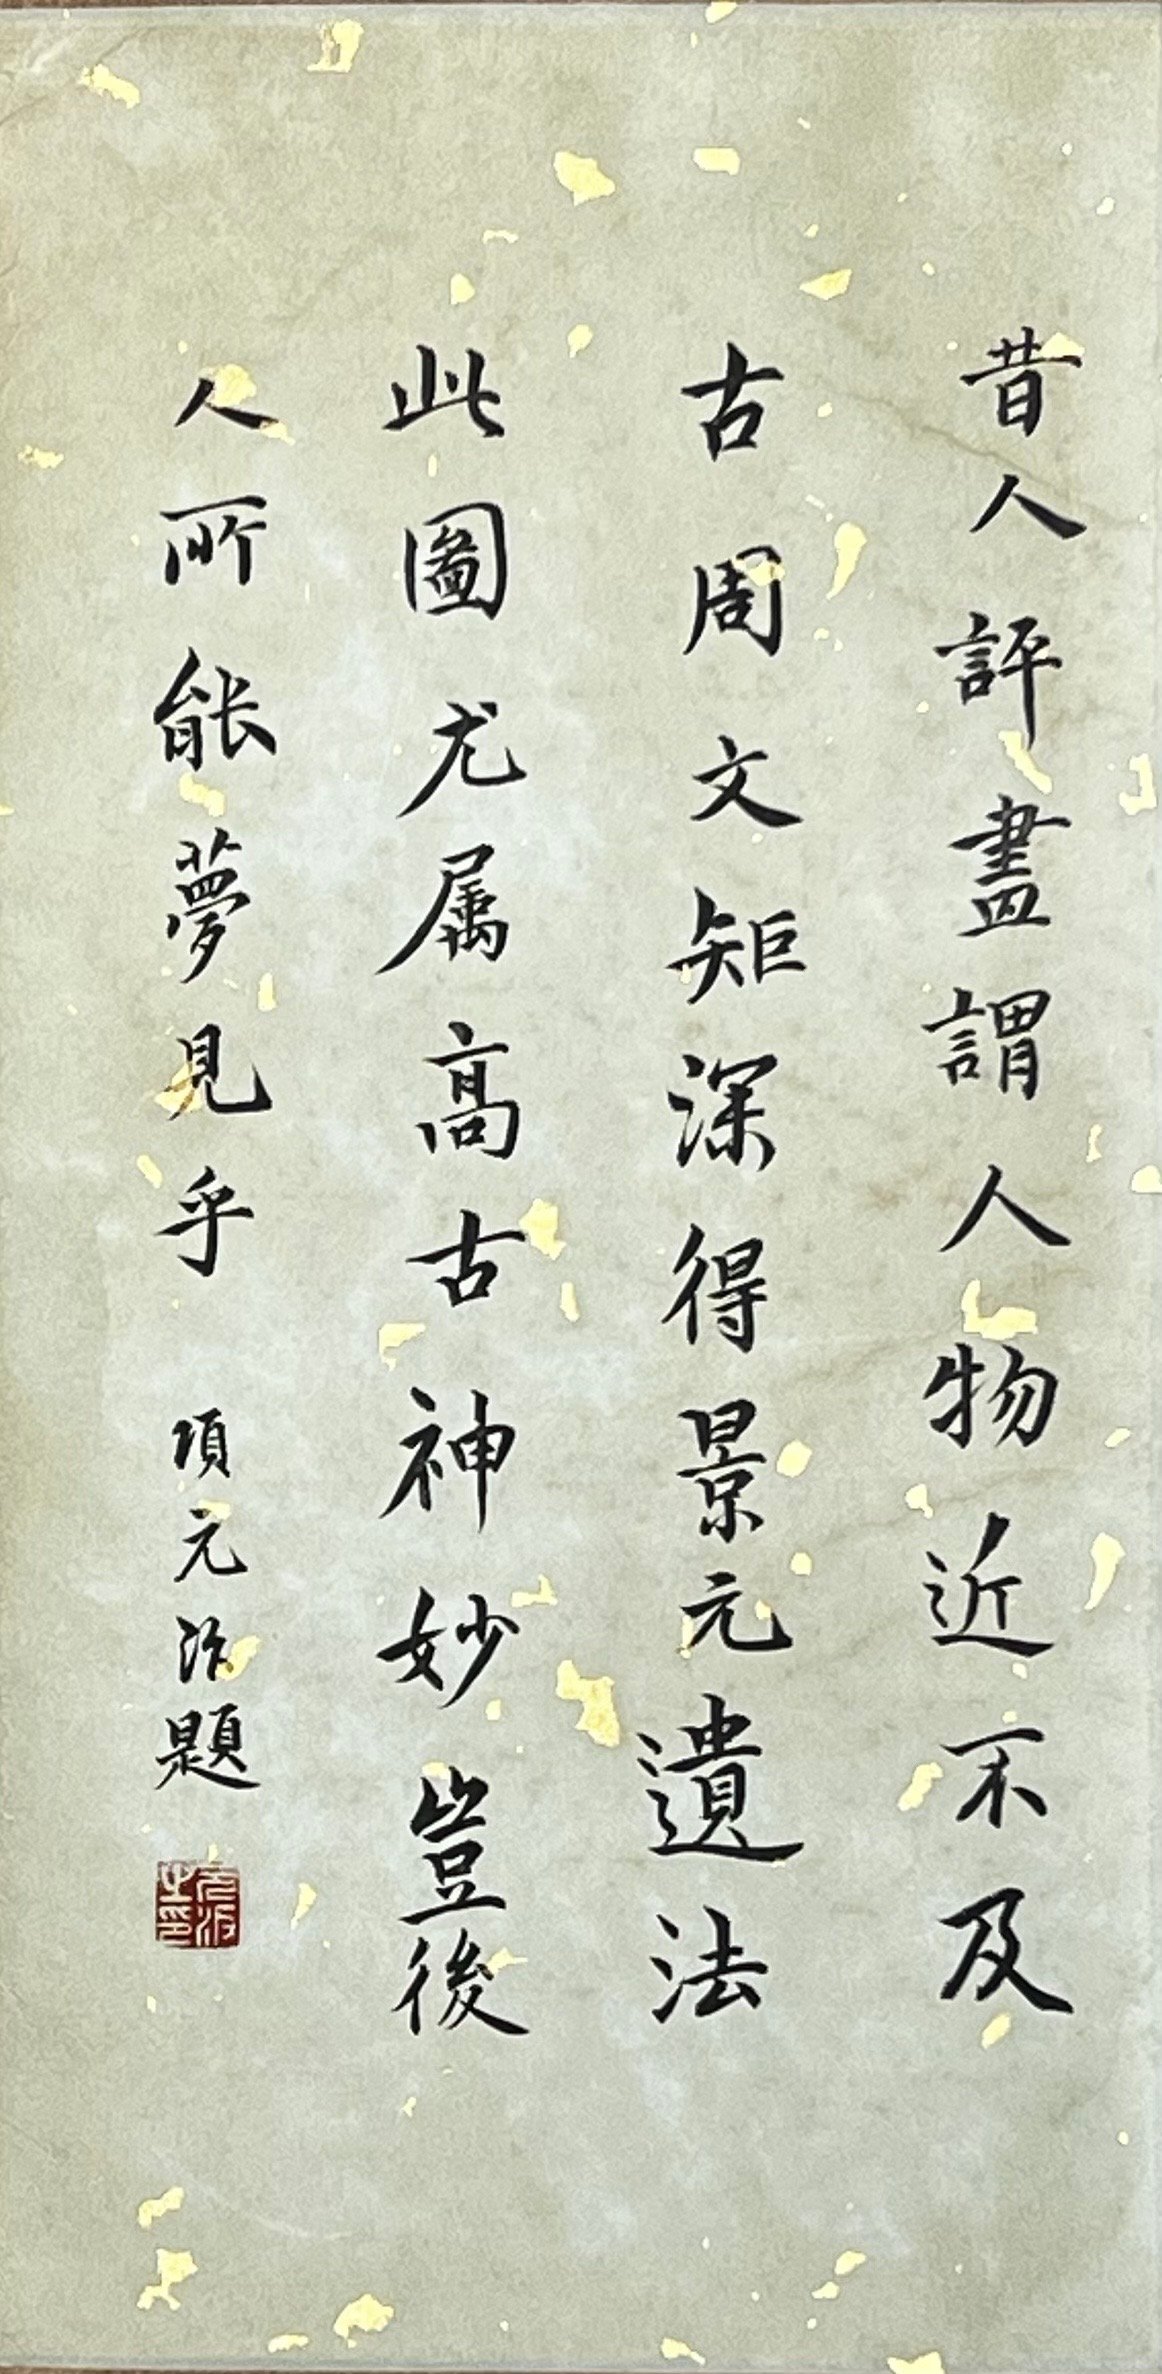 昔人評畫謂人物近不及
古周文矩深得景元遺法
此圖尤属髙古神妙豈後
人所能夢見乎 項元汴題
元汴之印